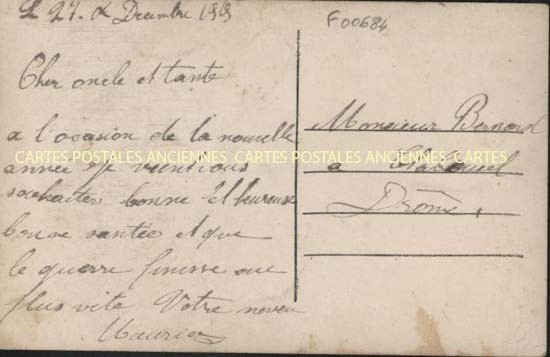 27. Decembre
F00684
Cher oncle et tante
a l'ocasion de la nouvelle
année je vient vous
souhaiter bonne et heureuse
bonne santée et que
le guerre finisse au
plus vite Votre neveu
Maurice
Monsieur Bernord
a
Drôme.
CARTES POSTALES ANCIENNES CARTES POSTALES ANCIENNES